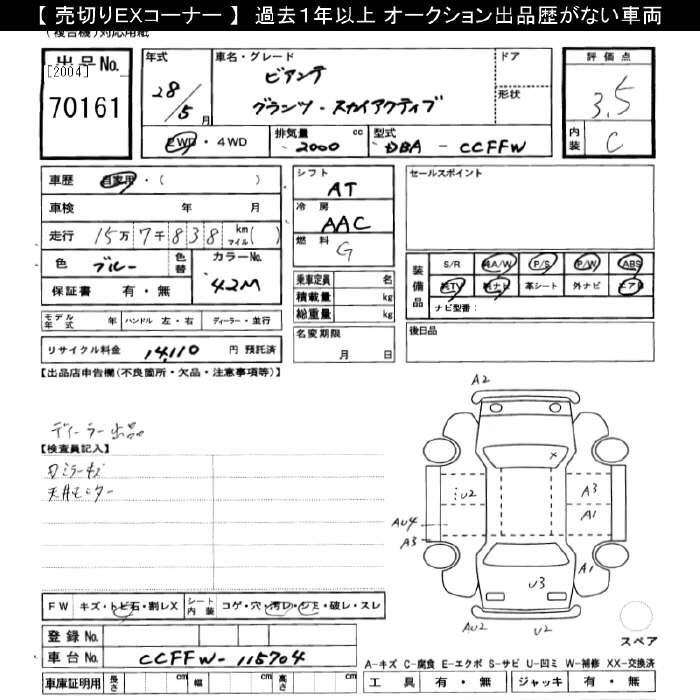 【 売切りEXコーナー 】 過去1年以上 オークション出品歴がない車両
(複合機)対応用紙
出品No.
[2004]
70161
年式
28/5月
車名・グレード
ビアンテ
グランツ-スカイアクティブ
ドア
形状
2WD・4WD
排気量 cc
2000
型式
DBA - CCFFW
評価点
3.5
内装
C
車歴 自家用・( )
車検 年 月
走行 15万7千838 km マイル( )
色 ブルー 色替
カラーNo.
42M
保証書 有・無
シフト
AT
冷房
AAC
燃料
G
乗車定員 名
積載量 kg
総重量 kg
セールスポイント
装備品
S/R 純A/W P/S P/W ABS
純TV 純ナビ 革シート 外ナビ エアB
ナビ型番:
モデル年式 年 ハンドル 左・右 ディーラー・並行
リサイクル料金 14,110 円 預託済
名変期限
月 日
後日品
【出品店申告欄(不良箇所・欠品・注意事項等)】
ディーラー出品
【検査員記入】
天井モニター
A2
U2
A3
A1
AU4
A3
A1
U3
AU2 U2
スペア
FW キズ・トビ石・割レX シート内装 コゲ・穴・汚レ・シミ・破レ・スレ
登録No.
車台No. CCFFW-115704
車庫証明用 長さ cm 幅 cm 高さ cm
A-キズ C-腐食 E-エクボ S-サビ U-凹ミ W-補修 XX-交換済
工具 有・無 ジャッキ 有・無